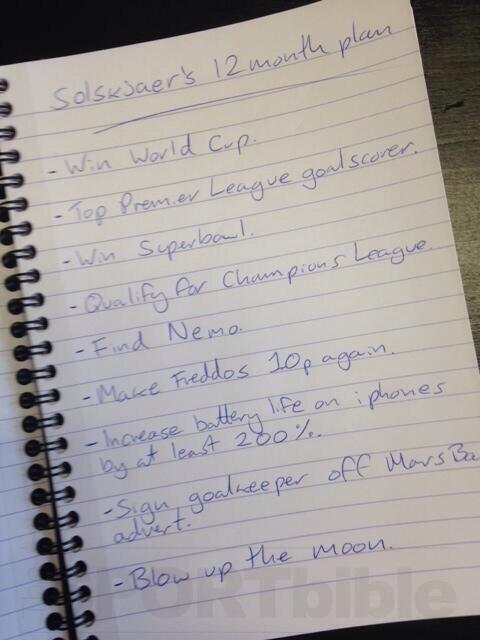 Solskjaer's 12 month plan
- Win World Cup.
- Top Premier League goalscorer.
- Win Superbowl.
- Qualify for Champions League.
- Find Nemo.
- Make Freddos 10p again.
- Increase battery life on iphones
by at least 200%.
- Sign goalkeeper off Mars Ba
advert.
- Blow up the moon.
PORTbible